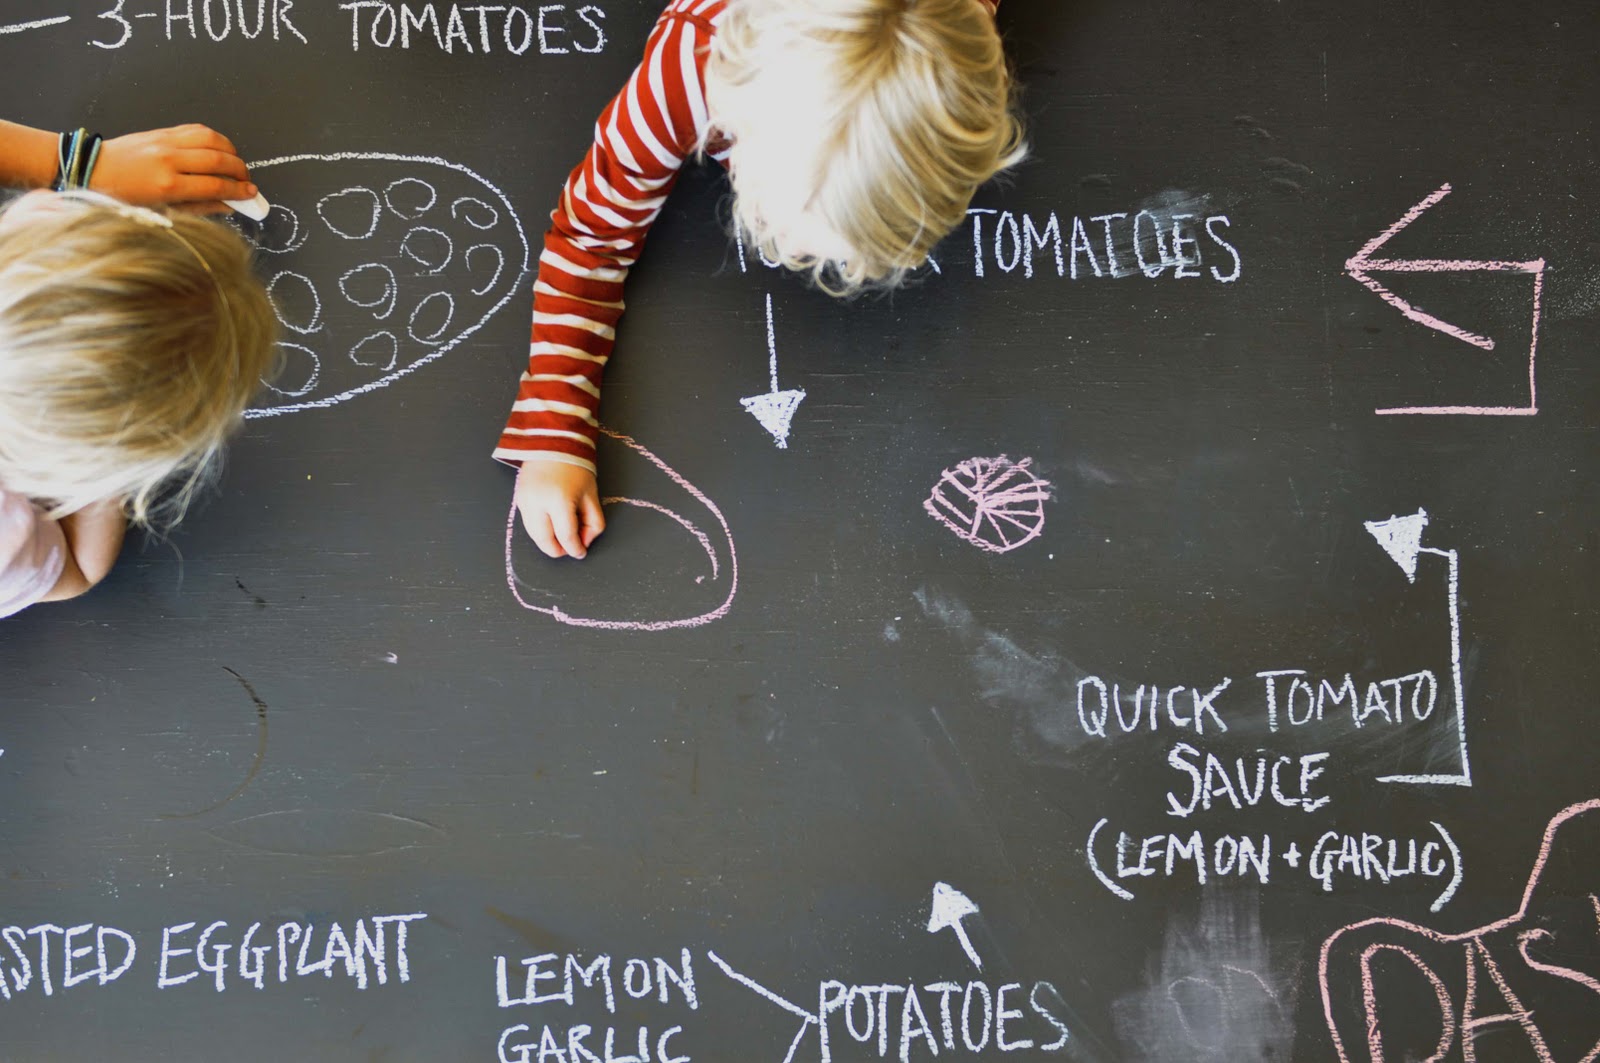 3-HOUR TOMATOES
TOMATOES
QUICK TOMATO
SAUCE
(LEMON + GARLIC)
EGGPLANT
LEMON
GARLIC
POTATOES